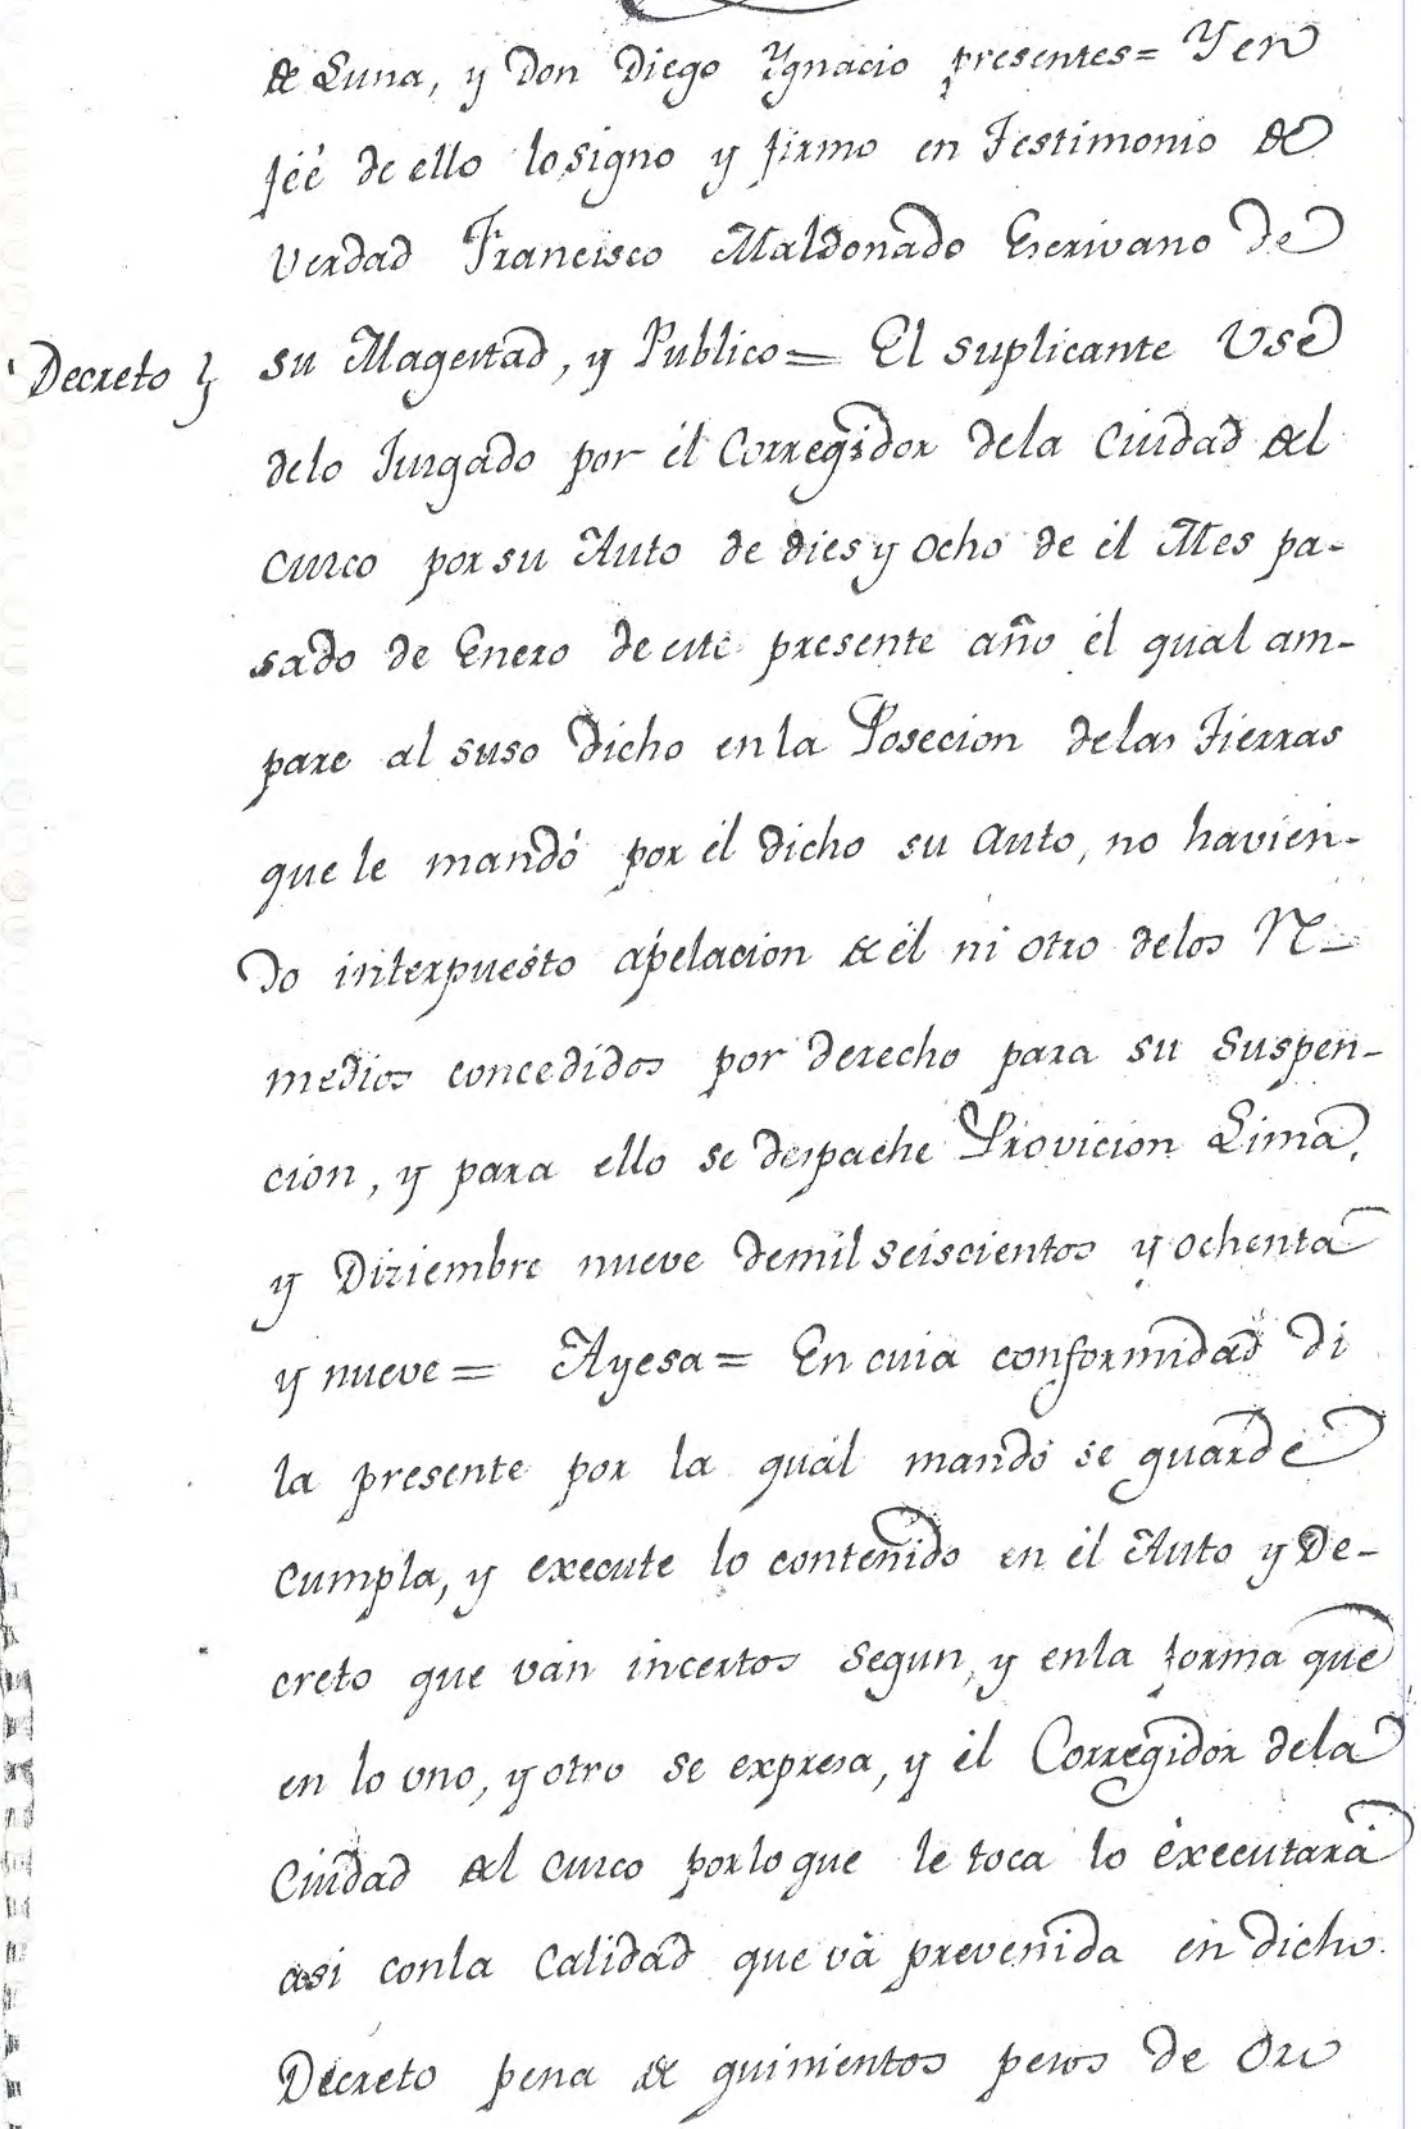 de Luna, y Don Diego Ygnacio presentes= Y en
feé de ello lo signo y firmo en Testimonio de
Verdad Francisco Maldonado Escrivano de
Decreto } su Magestad, y Publico= El suplicante Use
delo Juzgado por él Corregidor dela Ciudad del
Cuzco por su Auto de dies y ocho de él Mes pa-
sado de Enero de este presente año él qual am-
pare al suso dicho en la Posecion delas Tierras
que le mandó por él dicho su Auto, no havien-
do interpuesto apelacion de él ni otro delos Re-
medios concedidos por derecho para su Suspen-
cion, y para ello se despache Provicion Lima,
y Diziembre nueve demil seiscientos y ochenta
y nueve= Ayesa= En cuia conformidad di
la presente por la qual mandó se guarde
Cumpla, y execute lo contenido en él Auto y De-
creto que ván incertos segun, y enla forma que
en lo uno, y otro se expresa, y él Corregidor dela
Ciudad del Cuzco porloque le toca lo executará
asi conla Calidad que vá prevenida en dicho
Decreto pena de quinientos pesos de Oro